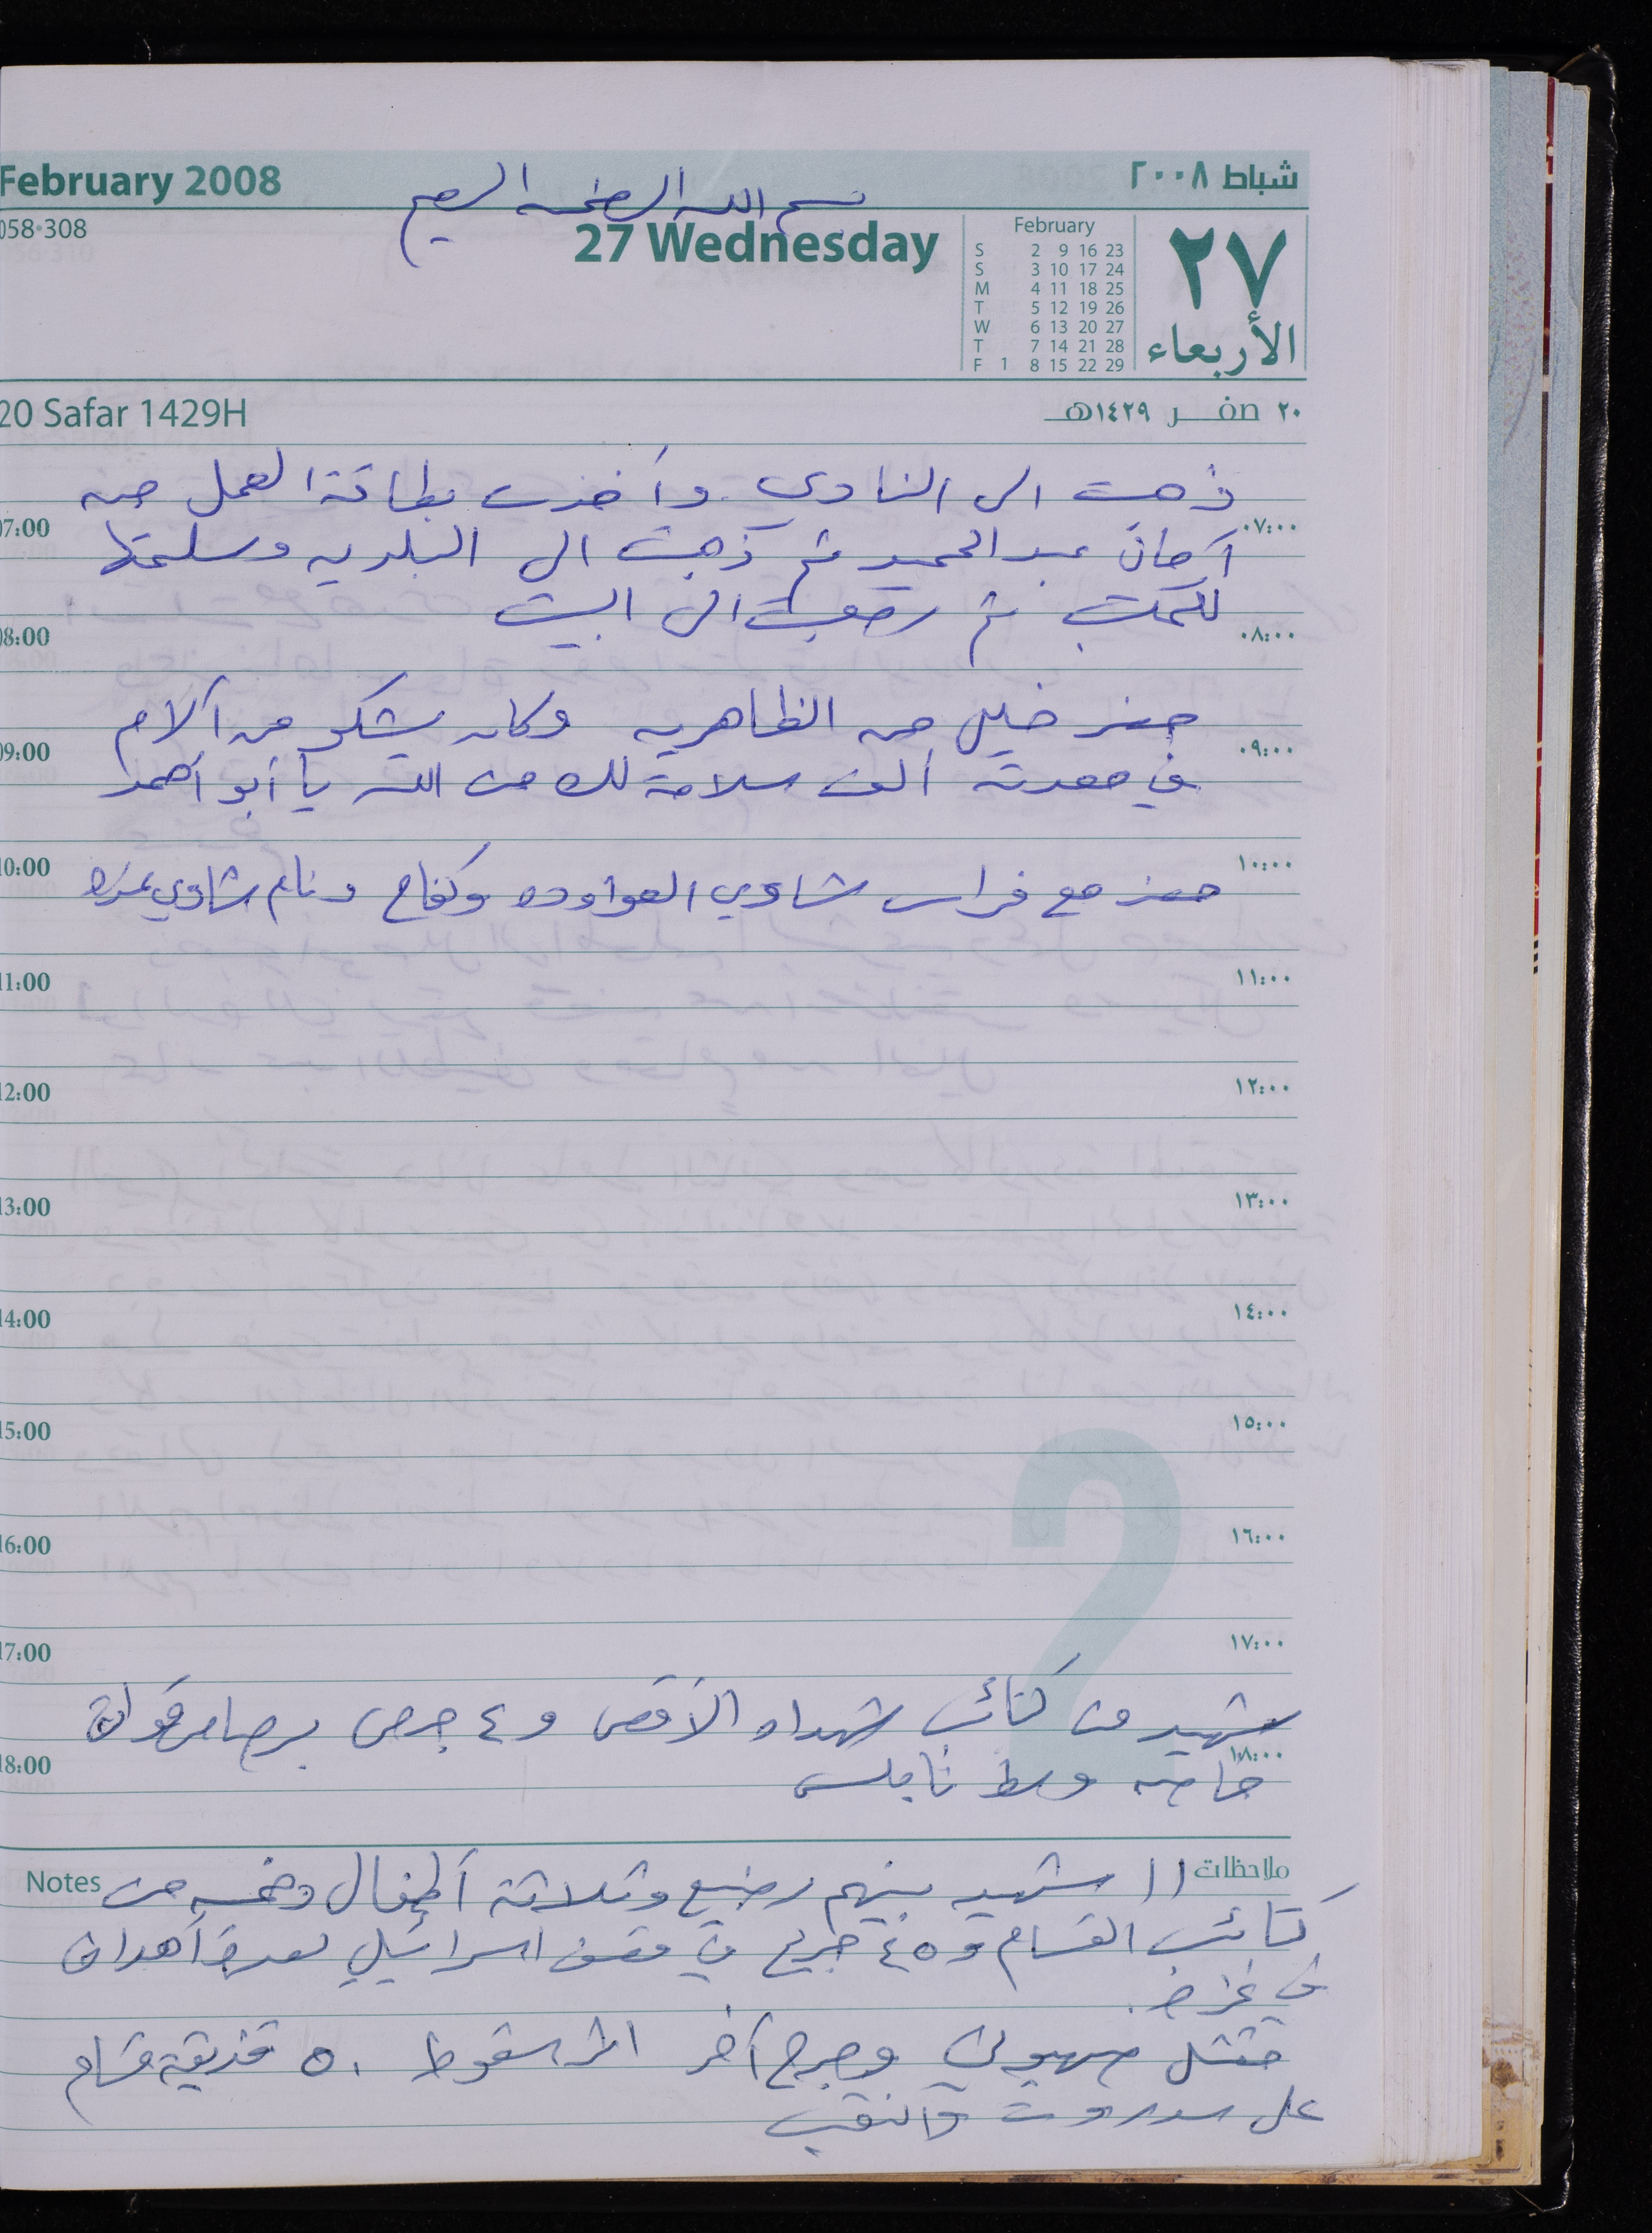 February 2008
شباط ٢٠٠٨
بسم الله الرحمن الرحيم
058-308
27 Wednesday
February
S 2 9 16 23
S 3 10 17 24
M 4 11 18 25
T 5 12 19 26
W 6 13 20 27
T 7 14 21 28
F 1 8 15 22 29
٢٧
الأربعاء
20 Safar 1429H
٢٠ صفر ١٤٢٩هـ
ذهبت الى النادي وأخذت بطاقة العمل من
07:00 ٠٧:٠٠
عبد الحميد ثم ذهبت الى البلديه وسلمتها
للمكتب ثم رجعت الى البيت
08:00 ٠٨:٠٠
حضر خليل من الظاهريه وكان يشكو من آلام
09:00 ٠٩:٠٠
في معدته ألف سلامة لك من الله يا أبو أحمد
10:00 ١٠:٠٠
حضر مع فراس شادي العواوده وكفاح ونام شادي
11:00 ١١:٠٠
12:00 ١٢:٠٠
13:00 ١٣:٠٠
14:00 ١٤:٠٠
15:00 ١٥:٠٠
16:00 ١٦:٠٠
2
17:00 ١٧:٠٠
شهيد من كتائب شهداء الأقصى و ٤ جرحى برصاص قوات
18:00 ١٨:٠٠
خاصه وسط نابلس
Notes ملاحظات
١١ شهيد بينهم رضيع وثلاثة أطفال وخمسه من
كتائب القسام و ٤٥ جريح في قصف اسرائيلي لعدة أهداف
في غزه.
مقتل صهيوني وجرح آخر اثر سقوط ٥٠ قذيفة قسام
على سديروت والنقب